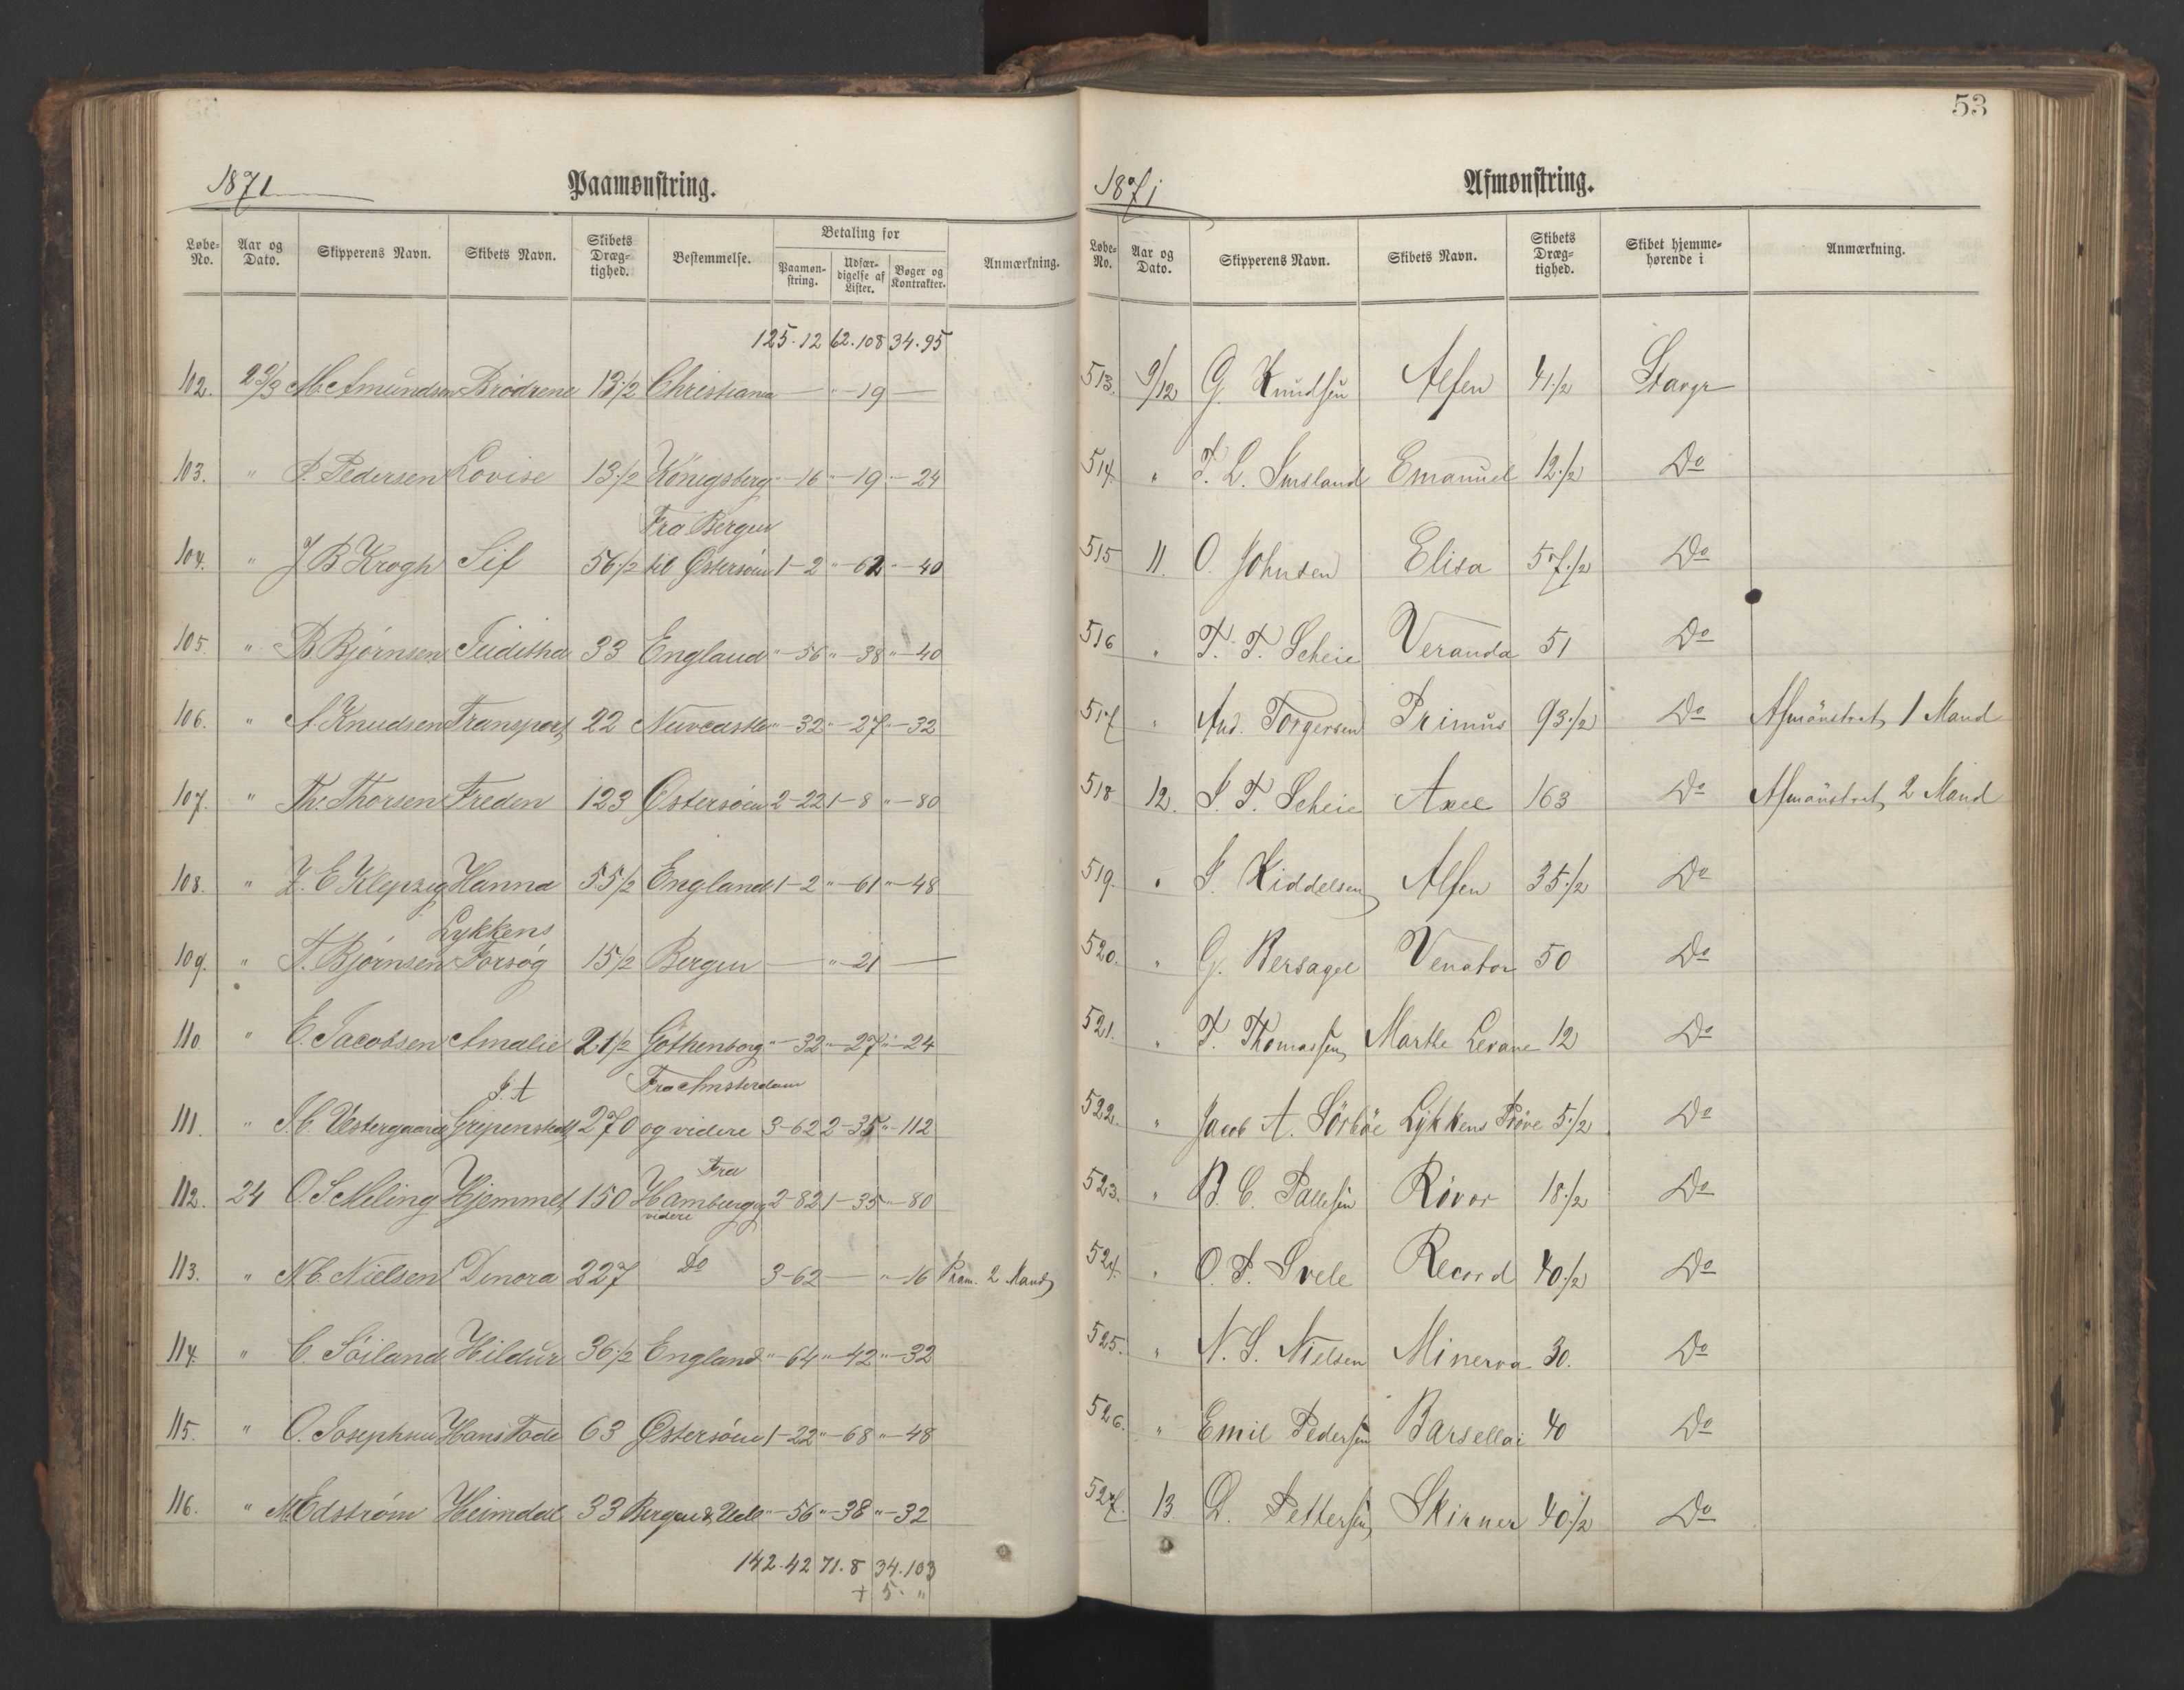 53
1871
Paamønstring.
Løbe-No. Aar og Dato. Skipperens Navn. Skibets Navn. Skibets Dræg-tighed. Bestemmelse. Betaling for Paamøn-string. Udfær-digelse af Lister. Bøger og Kontrakter. Anmærkning.
125.12 62.108 34.95
102. 23/3 M. Amundsen Brödrene 13 1/2 Christiania — " — 19 —
103. " P. Pedersen Lovise 13 1/2 Königsberg " — 16 " — 19 " — 24
Fra Bergen
104. " J B Krogh Sif 56 1/2 til Østersöen 1 — 2 " — 62 " — 40
105. " B Bjørnsen Tuditha 33 England " — 56 " — 38 " — 40
106. " A. Knudsen Transport 22 Newcastle " — 32 " — 27 " — 32
107. " Th. Thorsen Freden 123 Østersöen 2 — 22 1 — 8 " — 80
108. " Z. E Klepzig Hanna 55 1/2 England 1 — 2 " — 61 " — 48
Lykkens
109. " T. Bjørnsen Forsög 15 1/2 Bergen — " — 21 —
110 " E. Jacobsen Amalie 21 1/2 Göthenborg " — 32 " — 27 " — 24
J. A Fra Amsterdam
111. " J. C. Vestergaard Gripenstedt 270 og videre 3 — 62 2 — 35 " — 112
Fra
112. 24 O. S. Meling Hjemmet 150 Hamburg og 2 — 82 1 — 35 " — 80
videre
113. " N C. Nielsen Dinora 227 Do 3 — 62 — " — 16 Paam. 2 Mand
114. " C. Söiland Hildur 36 1/2 England " — 64 " — 42 " — 32
115. " O. Josephsen Hans Tode 63 Østersöen 1 — 22 " — 68 " — 48
116. " M Edström Heimdal 33 Bergen & " — 56 " — 38 " — 32
142.42 71.8 34.103
+ 5. "
1871
Afmønstring.
Løbe-No. Aar og Dato. Skipperens Navn. Skibets Navn. Skibets Dræg-tighed. Skibet hjemme-hørende i Anmærkning.
513. 9/12 G. Knudsen Alfen 41 1/2 Stavgr
514. " T. L. Smsland Emanuel 12 1/2 Do
515 11. O. Johnsen Elisa 57 1/2 Do
516 " T. T. Scheie Veranda 51 Do
517 " And. Torgersen Primus 93 1/2 Do Afmönstret 1 Mand
518 12. S. T. Scheie Axel 163 Do Afmönstret 2 Mand
519. " S. Kiddelsen Alfen 35 1/2 Do
520. " G. Bersagel Venator 50 Do
521. " T. Thomassen Marthe Levane 12 Do
522. " Jacob A. Sörböe Lykkens Pröve 5 1/2 Do
523. " B. C. Pallesen Rövor 18 1/2 Do
524. " O. T. Svele Record 40 1/2 Do
525. " N. S. Nielsen Minerva 30. Do
526. " Emil Pedersen Barsellai 40 Do
527. 13 L. Pettersen Skirner 40 1/2 Do